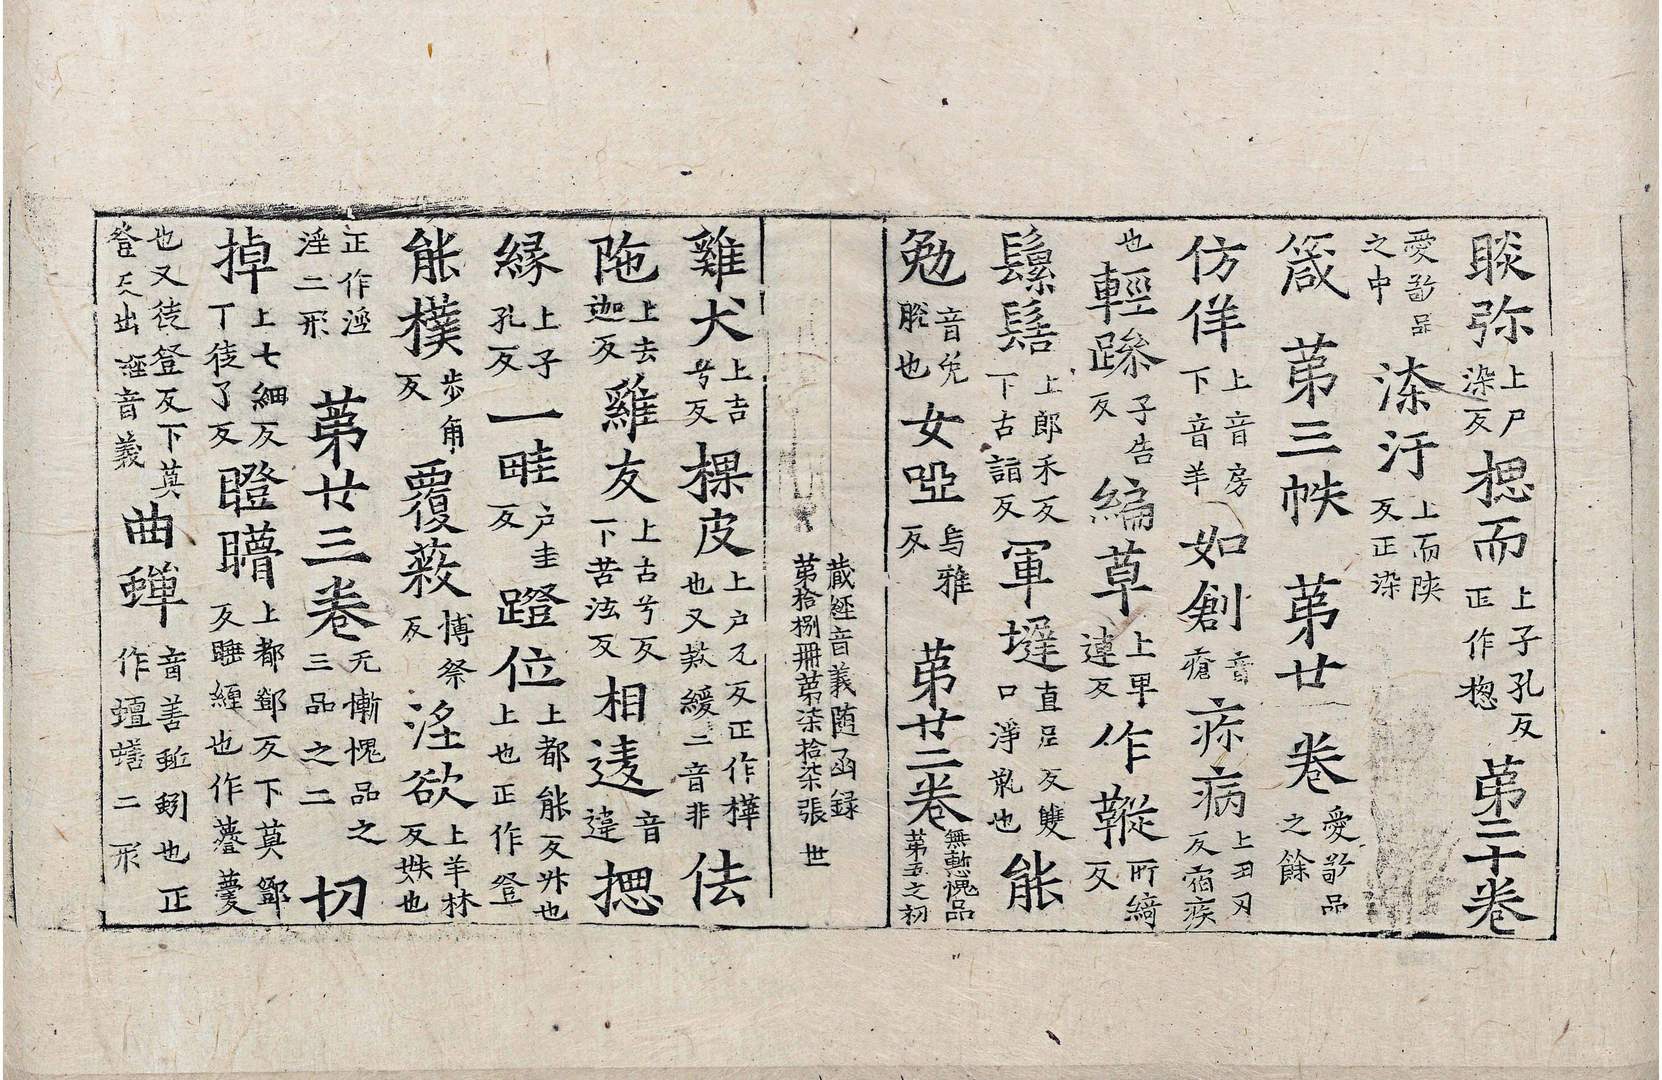 睒弥上尸染反楤而上子孔反正作楤第二十卷
愛敬品之中漆汙上而陝反正染
箴第三帙第廿卷愛敬品之餘
仿佯上音房下音羊如創音瘡疢病上丑刃反宿疾
也輕躁子告反編草上卑連反作鞦所綺反
鬃髻上郎禾反下古詣反軍墀直 反雙口淨 也能
勉音免脫也女啞烏雅反第廿二卷無慙愧品第五之初
藏經音義随函録第拾捌冊第柒拾柒張 世
雞犬上吉兮反棵皮上户瓦反正作樺也又 緩二音非佉
陁上去迦反雞友上古兮反下苦法反相逺音違揌
緣上子孔反一畦户圭反蹬位上都能反升也上也正作登
能樸步角反覆蔽博祭反淫欲上羊林反姝也
正作淫淫二形第廿三卷无慚愧品之三品之二切
掉上七細反丁徒了反瞪瞢上都鄧反下莫鄧反睡經也作薹薹
也又徒登反下莫登反出淫音義曲蟬音善蚯蚓也正作蟺蟮二形